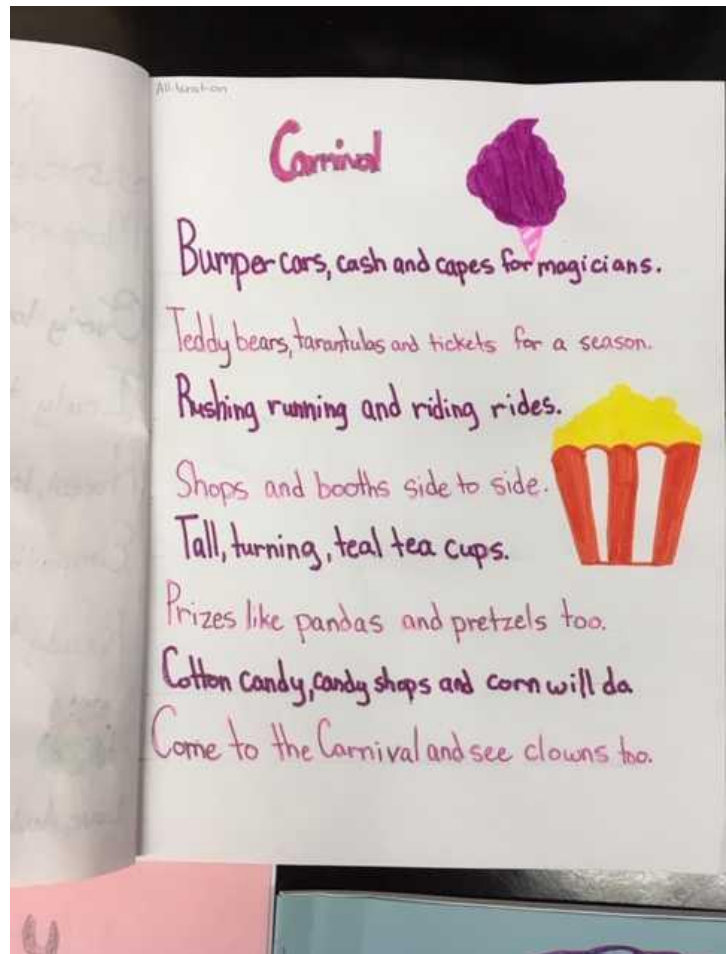 Alliteration
Carnival
Bumper cars, cash and capes for magicians.
Teddy bears, tarantulas and tickets for a season.
Rushing running and riding rides.
Shops and booths side to side.
Tall, turning, teal tea cups.
Prizes like pandas and pretzels too.
Cotton candy, candy shops and corn will do
Come to the Carnival and see clowns too.